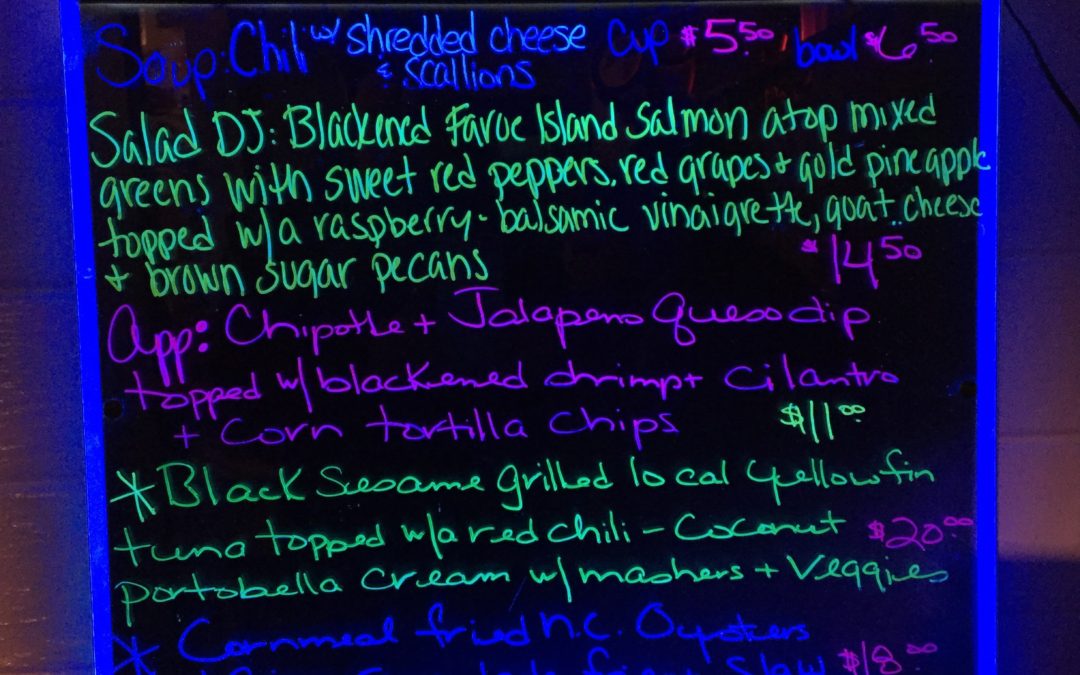 Soup: Chili w/ shredded cheese cup $5.50, bowl $6.50
& scallions
Salad DJ: Blackened Faroe Island Salmon atop mixed
greens with sweet red peppers, red grapes + gold pineapple
topped w/ a raspberry-balsamic vinaigrette, goat cheese
+ brown sugar pecans $14.50
App: Chipotle + Jalapeno Queso dip
topped w/ blackened shrimp + cilantro
+ Corn tortilla Chips $11.00
* Black Sesame grilled local yellowfin
tuna topped w/ a red chili - Coconut $20.00
portobella cream w/ mashers + Veggies
* Cornmeal fried N.C. Oysters
fries Slaw $18.00